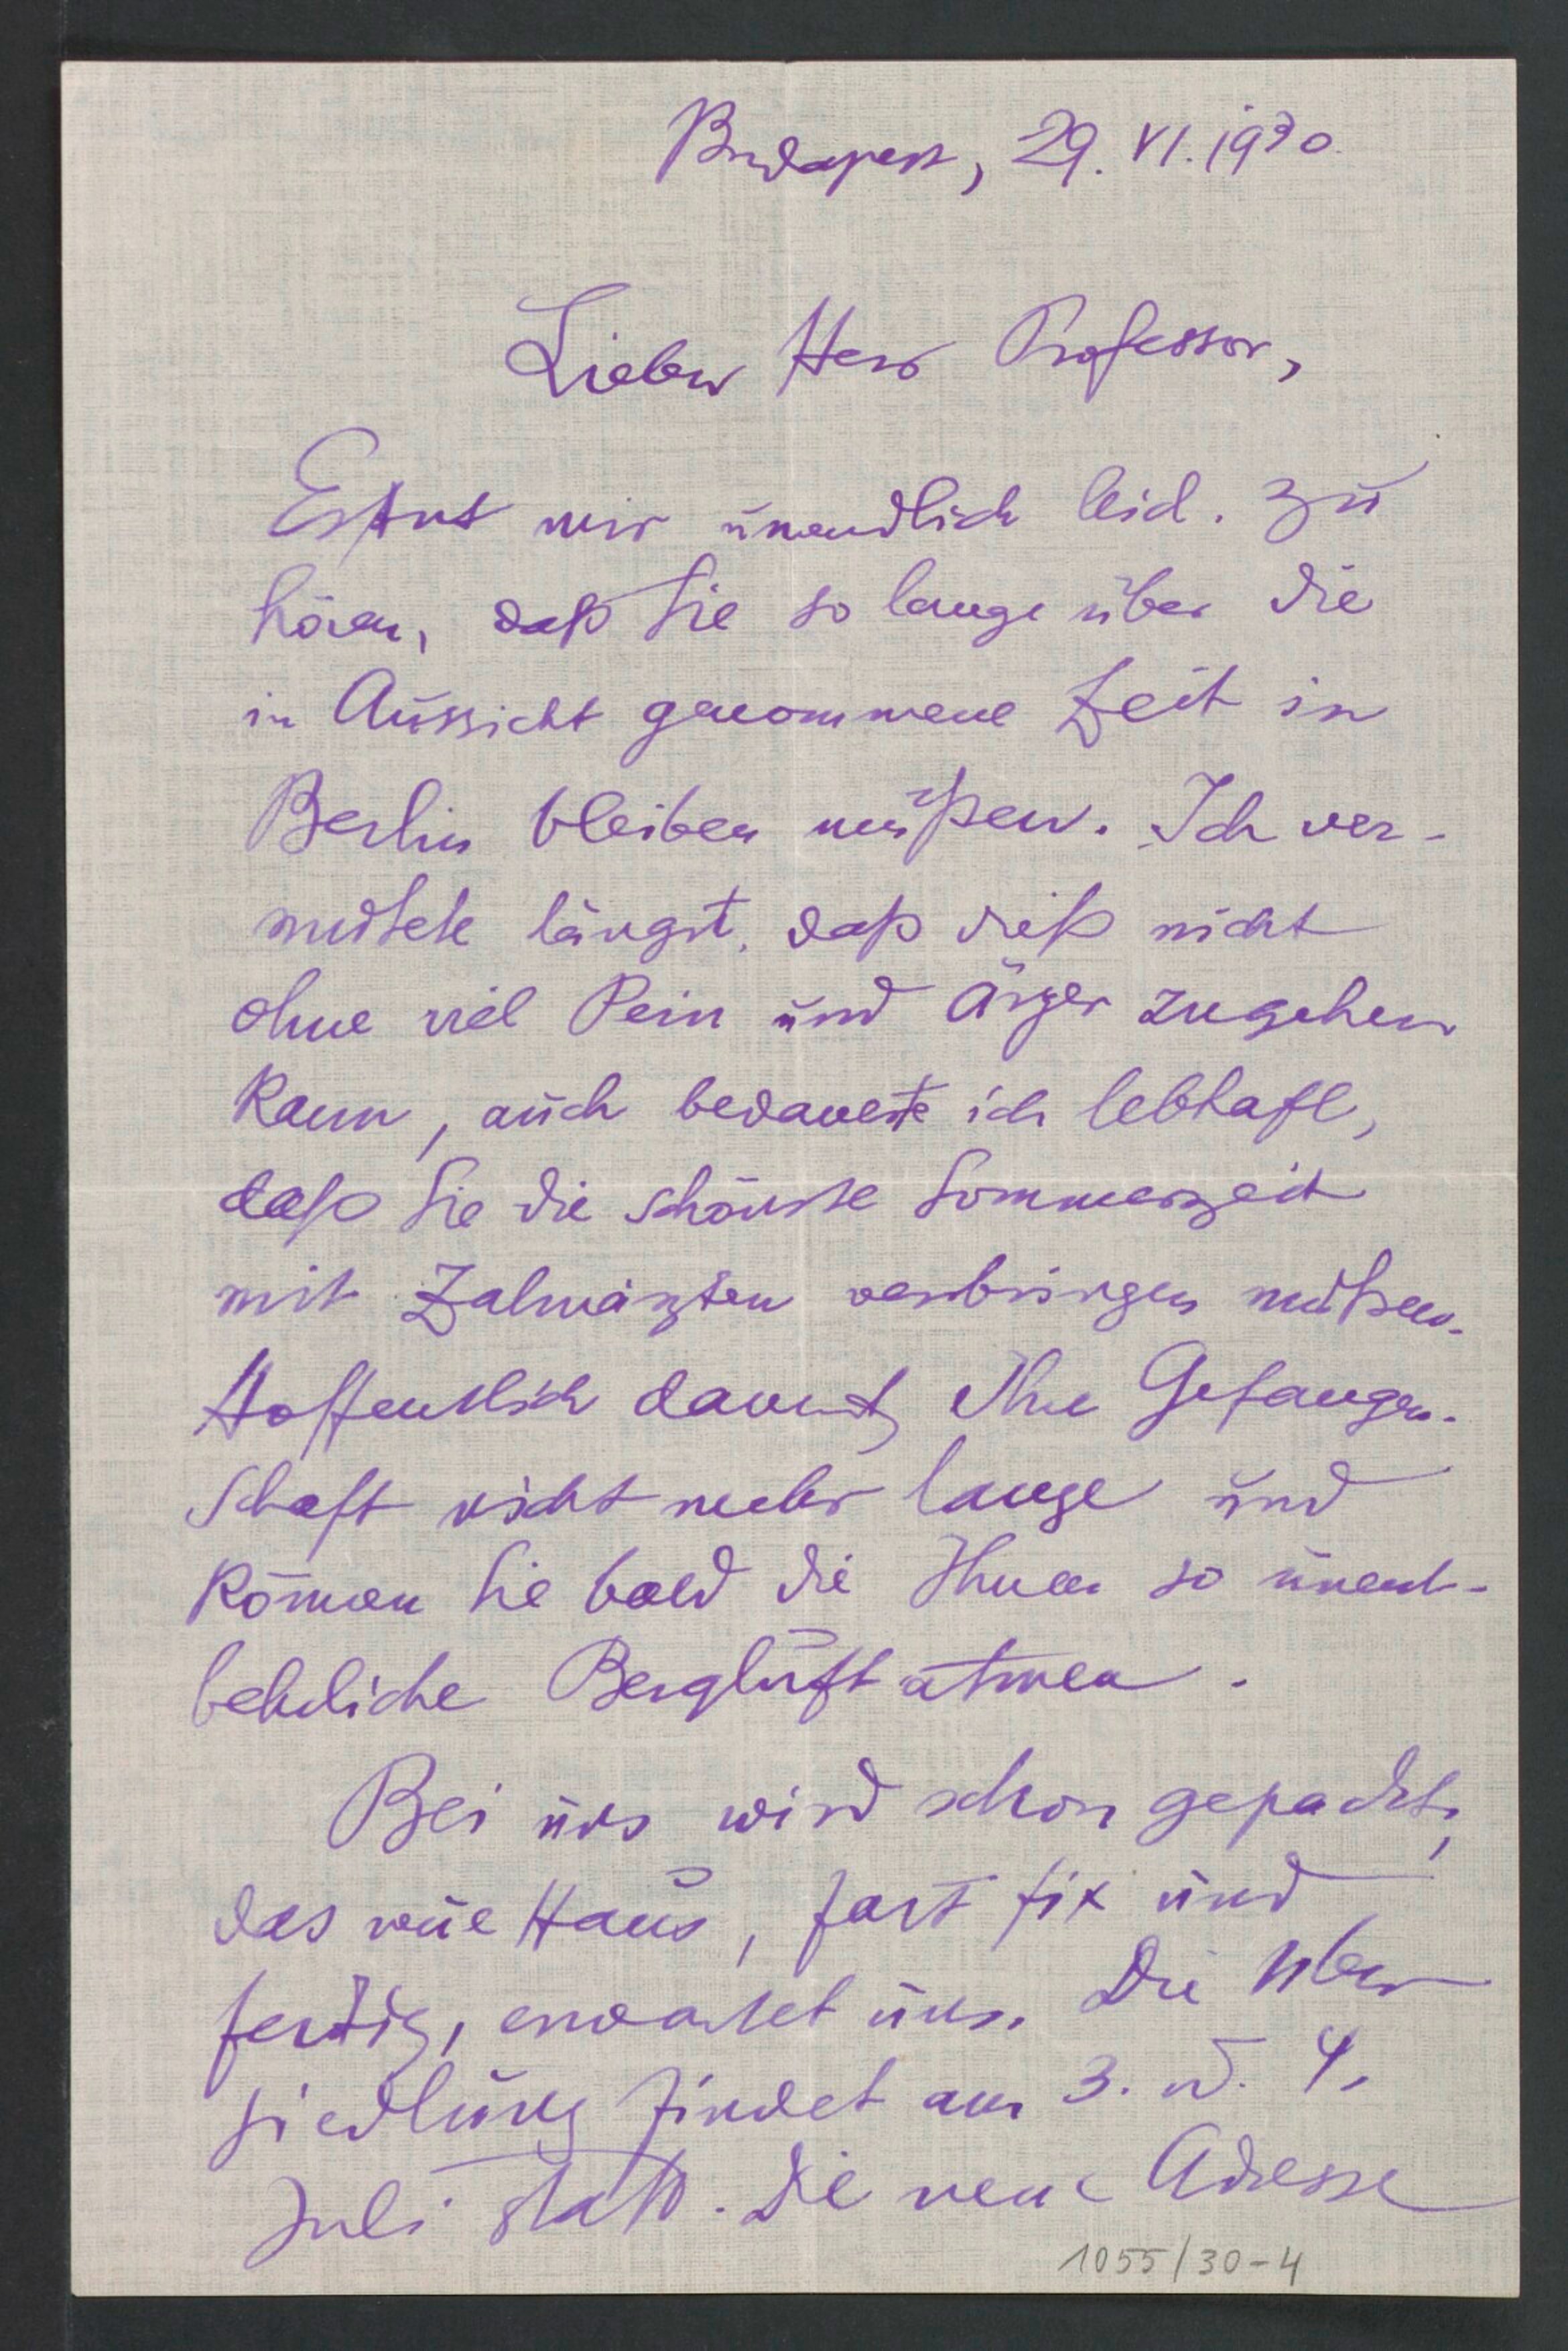 Budapest, 29. VI. 1930.
Lieber Herr Professor,
Es tut mir unendlich leid, zu
hören, daß Sie so lange über die
in Aussicht genommene Zeit in
Berlin bleiben müßen. Ich ver-
mutete längst, daß dieß nicht
ohne viel Pein und Ärger zugehen
kann, auch bedauerte ich lebhaft,
daß Sie die schönste Sommerzeit
mit Zahnärzten verbringen müßen.
Hoffentlich dauert Ihre Gefangen-
schaft nicht mehr lange und
können Sie bald die Ihnen so unent-
behrliche Bergluft atmen.
Bei uns wird schon gepackt,
das neue Haus, fast fix und
fertig, erwartet uns. Die Über
siedlung findet am 3. u. 4.
Juli statt. Die neue Adresse
1055/30-4